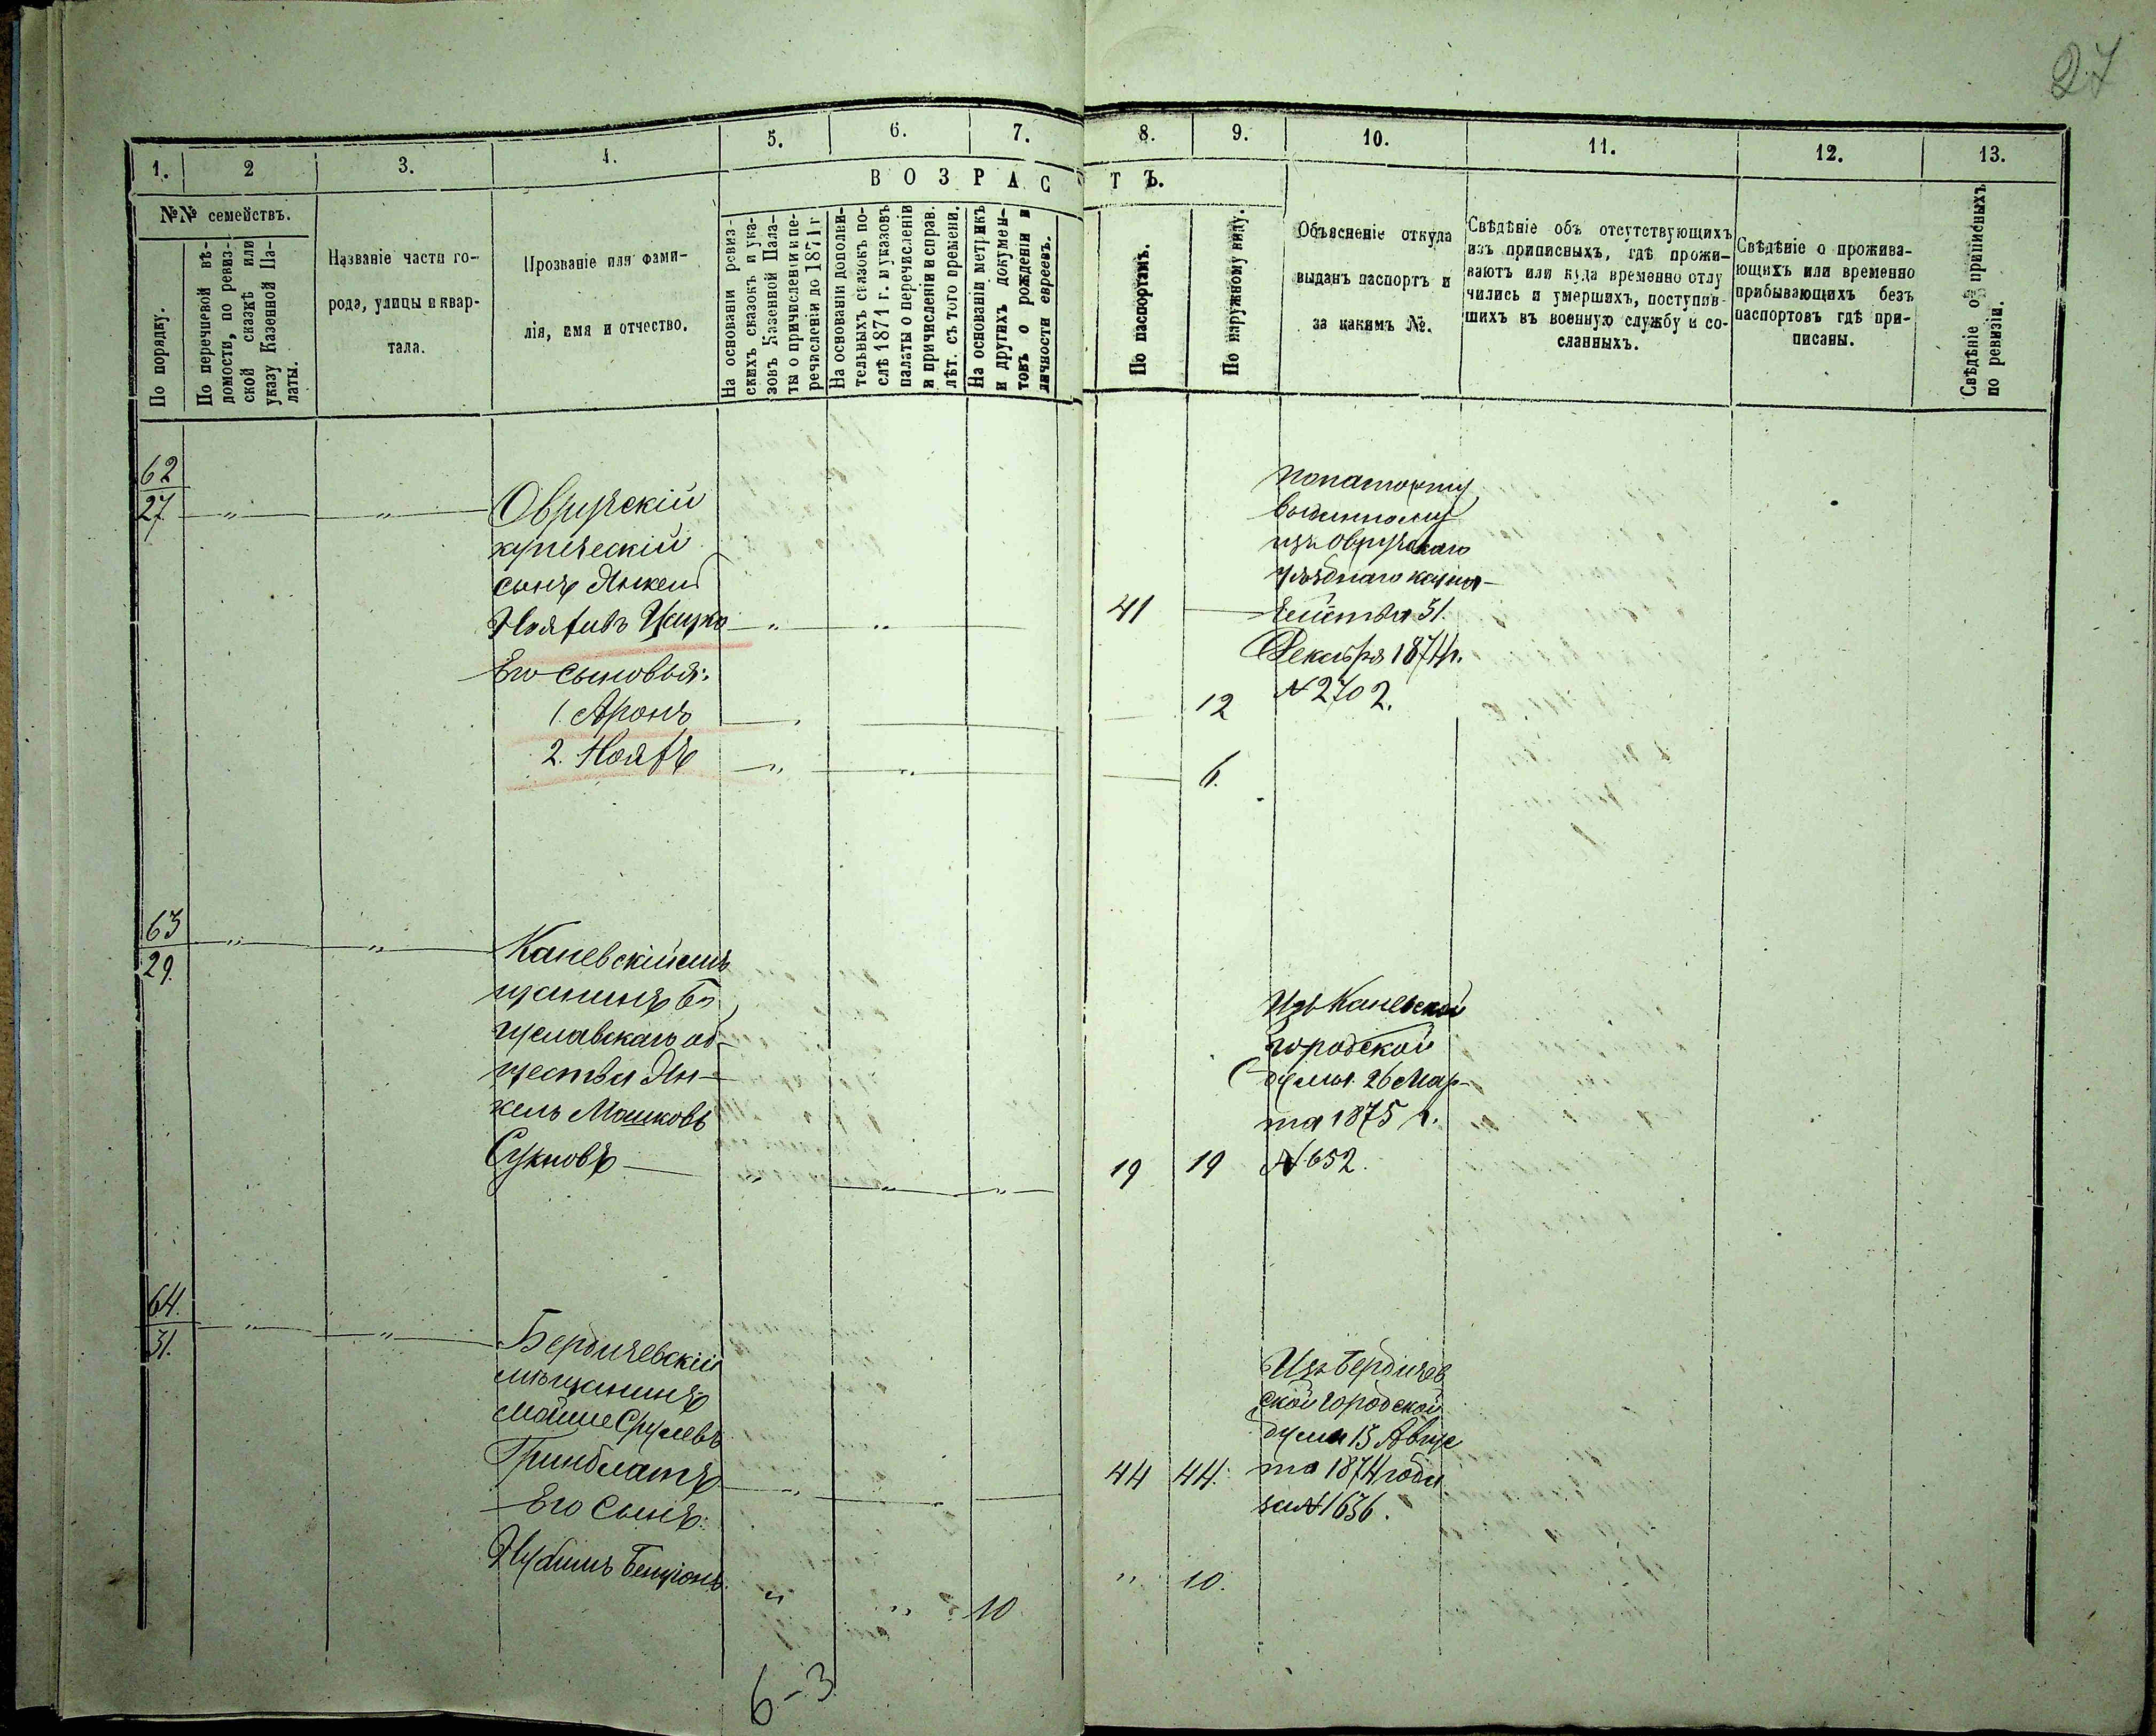 27
1. 2 3. 4. 5. 6. 7. 8. 9. 10. 11. 12. 13.
В О З Р А С Т Ъ.
№№ семействъ.
По порядку.
По перечневой вѣ-
домости, по ревиз-
ской сказкѣ или
указу Казенной Па-
латы.
Названіе части го-
рода, улицы и квар-
тала.
Прозваніе или фами-
лія, имя и отчество.
На основаніи ревиз-
скихъ сказокъ и ука-
зовъ Казенной Пала-
ты о причисленіи и пе-
речисленіи до 1871 г
На основаніи дополни-
тельныхъ сказокъ по-
слѣ 1871 г. и указовъ
палаты о перечисленіи
и причисленіи исправ.
лѣт. съ того времени.
На основаніи метрикъ
и другихъ докумен-
товъ о рожденіи и
личности евреевъ.
По паспортамъ.
По наружному виду.
Объясненіе откуда
выданъ паспортъ и
за какимъ №.
Свѣдѣніе объ отсутствующихъ
изъ приписныхъ, гдѣ прожи-
ваютъ или куда временно отлу
чились и умершихъ, поступив-
шихъ въ военную службу и со-
сланныхъ.
Свѣдѣніе о прожива-
ющихъ или временно
прибывающихъ безъ
паспортовъ гдѣ при-
писаны.
Свѣдѣніе о приписныхъ
по ревизіи.
62
27 " "
Овручскій
купеческій
сынъ Янкель
Цицко " " 41
Его сыновья:
1. Аронъ 12
2. " " 6.
выданному
изъ Овручскаго
уѣзднаго казна-
чейства 31.
Декабря 1874 г.
№ 2702.
63
29. " "
Каневскій мѣ
щанинъ Бо
гуславскаго об-
щества Ян-
кель Мошковъ
Сукновъ " " " 19 19
Изъ Каневской
городской
думы. 26 Мар-
та 1875 г.
№ 652.
64.
31. " "
Бердичевскій
мѣщанинъ
Мойше Срулевъ
Гринблатъ " 44 44.
Его сынъ:
Бенціонъ. " " 10 " 10.
Изъ Бердичев
ской городской
думы 13 Авгус
та 1874 года
за № 1636.
6-3